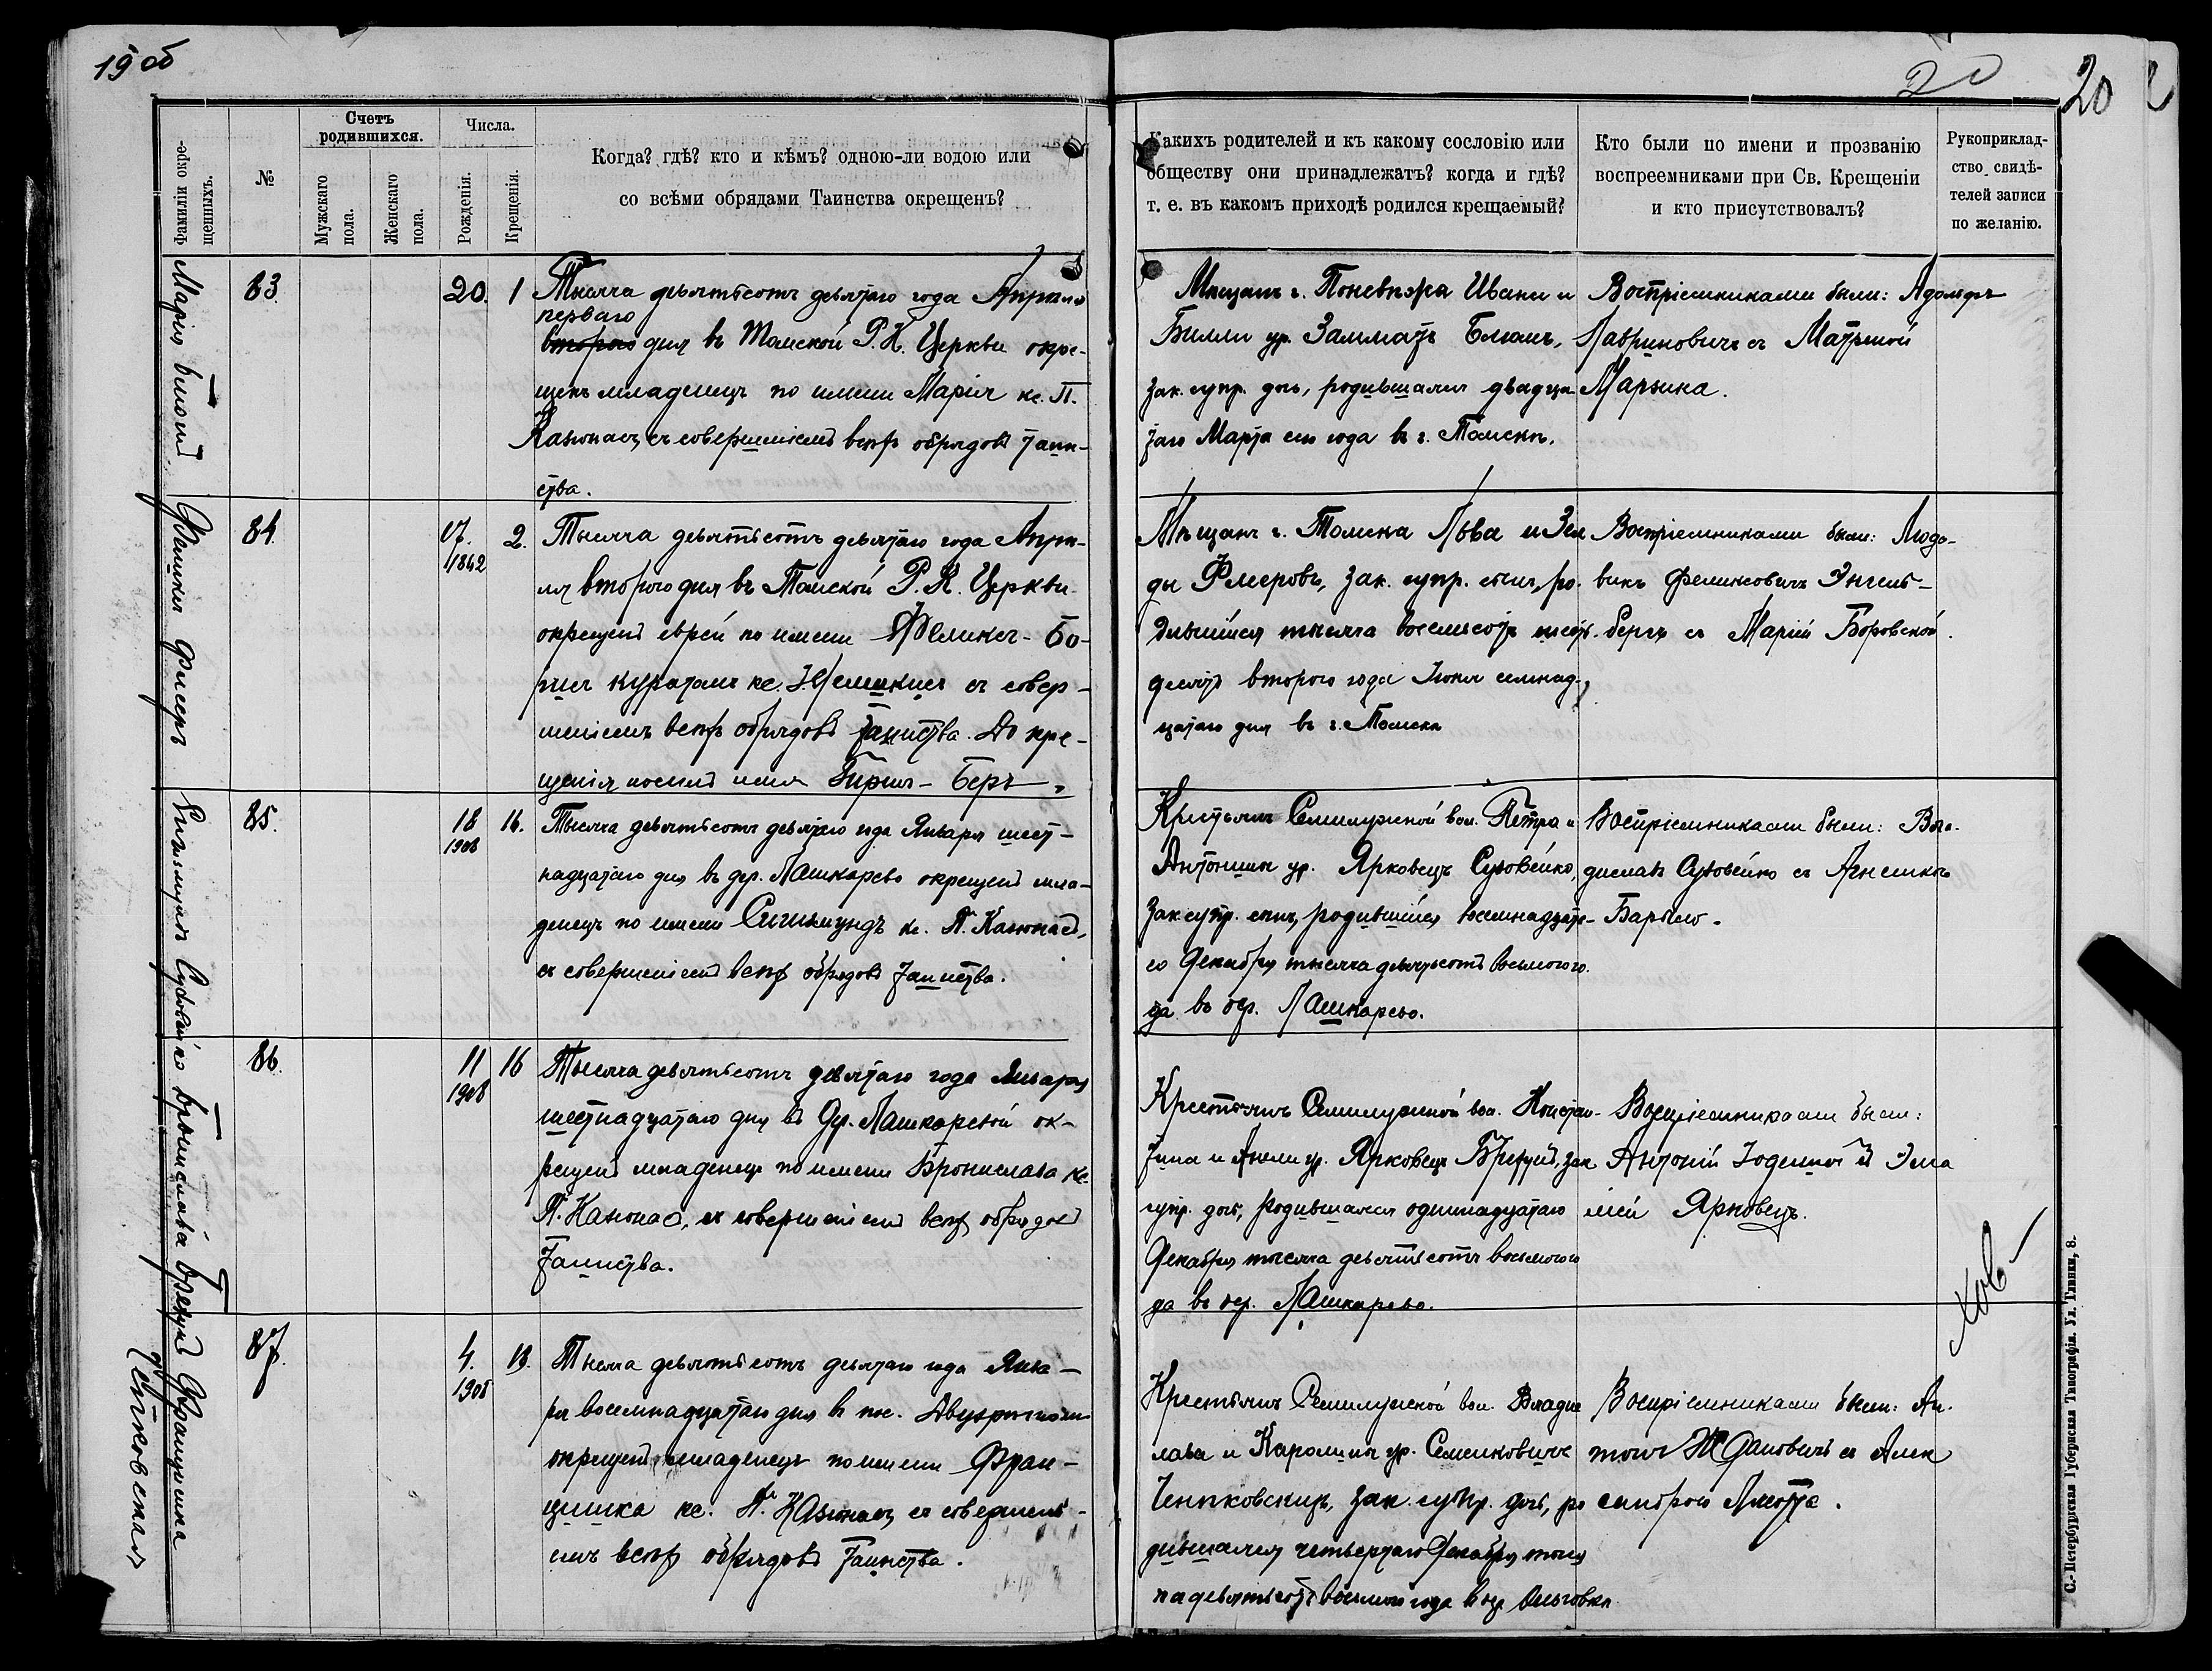 19 об
20
20
Фамиліи окре-
щенныхъ.
№
Счетъ
родившихся.
Мужскаго
пола.
Женскаго
пола.
Числа.
Рожденія.
Крещенія.
Когда? гдѣ? кто и кѣмъ? одною-ли водою или
со всѣми обрядами Таинства окрещенъ?
Какихъ родителей и къ какому сословію или
обществу они принадлежатъ? когда и гдѣ?
т. е. въ какомъ приходѣ родился крещаемый?
Кто были по имени и прозванію
воспреемниками при Св. Крещеніи
и кто присутствовалъ?
Рукоприклад-
ство свидѣ-
телей записи
по желанію.
Марія Блюмъ
83.
20.
1
Тысяча девятьсотъ девятаго года Апрѣля
перваго
второго дня въ Томской Р. К. Церкви окре-
щенъ младенецъ по имени Марія кс. П.
Казюнасъ, съ совершеніемъ всѣхъ обрядовъ Таин-
ства.
Мѣщанъ г. Поневѣжа Ивана и
Билли ур. Замматъ Блюмъ,
зак. супр. дочь, родившаяся двадца
таго Марта сего года въ г. Томскѣ.
Воспріемниками были: Адольфъ
Лавриновичъ съ Матреной
Марьина.
Феликсъ Флееръ
84.
17.
1862
2.
Тысяча девятьсотъ девятаго года Апрѣ-
ля второго дня въ Томской Р. К. Церкви
окрещенъ еврей по имени Феликсъ-Бо-
рисъ куратомъ кс. І. Демикисъ съ совер-
шеніемъ всѣхъ обрядовъ Таинства. До кре-
щенія носилъ имя Гиршъ-Беръ.
Мѣщанъ г. Томска Льва и Зел
ды Флееровъ, зак. супр. сынъ, ро-
дившійся тысяча восемьсотъ шесть-
десятъ второго года Іюня семнад-
цатаго дня въ г. Томскѣ
Воспріемниками были: Людо-
викъ Феликсовичъ Энгель-
бергъ съ Маріей Боровской.
Сигизмундъ Судовейко
85.
18
1908
16.
Тысяча девятьсотъ девятаго года Января шест-
надцатаго дня въ дер. Лашкарево окрещенъ мла-
денецъ по имени Сигизмундъ кс. П. Казюнасъ,
съ совершеніемъ всѣхъ обрядовъ Таинства.
Крестьянъ Семилужной вол. Петра и
Антонины ур. Ярковецъ Судовейко,
зак. супр. сынъ, родившійся восемнадцата-
го Декабря тысяча девятьсотъ восьмого го-
да въ дер. Лашкарево.
Воспріемниками были: Вла-
диславъ Судовейко съ Агнешкой
Барыло.
Бронислава Брецкій
86.
11
1908
16
Тысяча девятьсотъ девятаго года Января
шестнадцатаго дня въ Дер. Лашкаревой ок-
рещенъ младенецъ по имени Бронислава кс.
П. Казюнасъ, съ совершеніемъ всѣхъ обрядовъ
Таинства.
Крестьянъ Семилужной вол. Констан-
тина и Анели ур. Ярковецъ Брецкій, зак
супр. дочь, родившаяся одиннадцатаго
Декабря тысяча девятьсотъ восьмого го
да въ дер. Лашкарево.
Воспріемниками были:
Антоній съ Эми
ліей Ярковецъ.
Франциска
Ченпковская
87.
4.
1908
18.
Тысяча девятьсотъ девятаго года Янва-
ря восемнадцатаго дня въ пос. Двурѣчномъ
окрещенъ младенецъ по имени Фран-
цишка кс. П. Казюнасъ, съ совершені-
емъ всѣхъ обрядовъ Таинства.
Крестьянъ Семилужной вол. Владис
лава и Каролины ур. Семенковичъ
Ченпковскихъ, зак. супр. дочь, ро
дившаяся четвертаго Декабря тыся
ча девятьсотъ восьмого года въ дер. Ольговкѣ
Воспріемниками были: Ан-
тонъ Ждановичъ съ Алек
сандрою
С.-Петербургская Губернская Типографія. Ул. Глинки, 8.